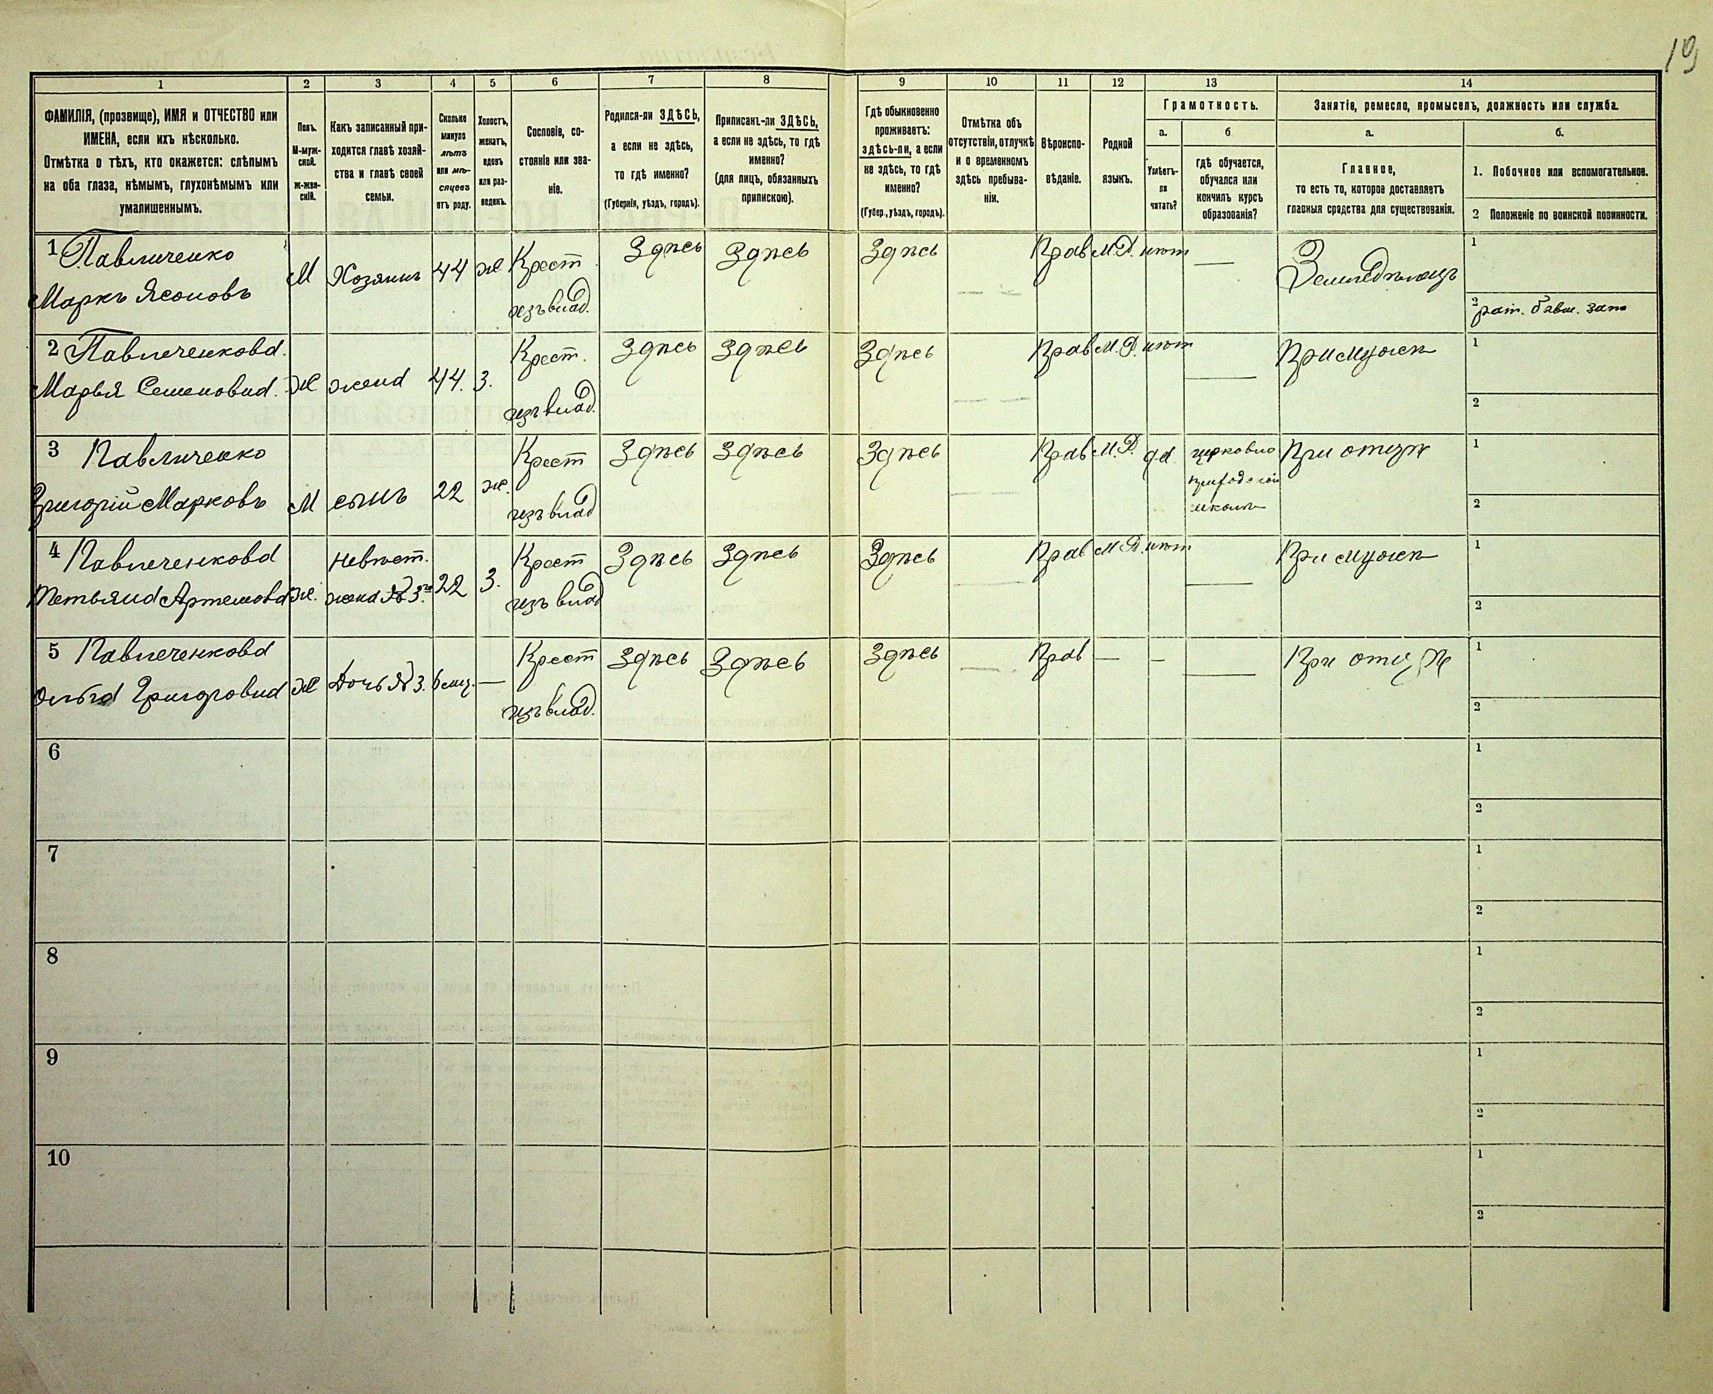 19
1 2 3 4 5 6 7 8 9 10 11 12 13 14
ФАМИЛІЯ, (прозвище), ИМЯ и ОТЧЕСТВО или
ИМЕНА, если ихъ нѣсколько.
Отмѣтка о тѣхъ, кто окажется: слѣпымъ
на оба глаза, нѣмымъ, глухонѣмымъ или
умалишеннымъ.
Полъ.
М-муж-
ской.
Ж-жен-
скій.
Какъ записанный при-
ходится главѣ хозяй-
ства и главѣ своей
семьи.
Сколько
минуло
лѣтъ
или мѣ-
сяцевъ
отъ роду.
Холостъ,
женатъ,
вдовъ
или раз-
веденъ.
Сословіе, со-
стояніе или зва-
ніе.
Родился-ли ЗДѢСЬ,
а если не здѣсь,
то гдѣ именно?
(Губернія, уѣздъ, городъ).
Приписанъ-ли ЗДѢСЬ,
а если не здѣсь, то гдѣ
именно?
(для лицъ, обязанныхъ
припискою).
Гдѣ обыкновенно
проживаетъ:
здѣсь-ли, а если
не здѣсь, то гдѣ
именно?
(Губер., уѣздъ, городъ).
Отмѣтка объ
отсутствіи, отлучкѣ
и о временномъ
здѣсь пребыва-
ніи.
Вѣроиспо-
вѣданіе.
Родной
языкъ.
Грамотность.
а.
Умѣетъ-
ли
читать?
б
гдѣ обучается,
обучался или
кончилъ курсъ
образованія?
Занятіе, ремесло, промыселъ, должность или служба.
а.
Главное,
то есть то, которое доставляетъ
главныя средства для существованія.
б.
1. Побочное или вспомогательное.
2 Положеніе по воинской повинности.
1 Павличенко
Маркъ Ясоновъ
М
Хозяинъ
44
ж
Крест.
изъ влад.
Здѣсь
Здѣсь
Здѣсь
— —
Прав
М.Р.
нѣтъ
—
Земледѣлецъ
1
2 рат. бывш. запа
2 Павличенкова.
Марья Семеновна.
ж
жена
44.
з.
Крест.
изъ влад.
Здѣсь
Здѣсь
Здѣсь
— —
Прав
М.Р.
нѣтъ
—
При мужѣ
1
2
3 Павличенко
Григорій Марковъ
М
сынъ
22
ж.
Крест
изъ влад
Здѣсь
Здѣсь
Здѣсь
— —
Прав
М.Р.
да
церковно
приходской
школѣ
При отцѣ
1
2
4 Павличенкова
Тетьяна Артемова
ж.
невѣст.
жена № 3го
22
з.
Крест
изъ влад
Здѣсь
Здѣсь
Здѣсь
—
Прав
М.Р.
нѣтъ
—
При мужѣ
1
2
5 Павличенкова
Ольга Григоровна
ж
Дочь № 3.
6 мц.
—
Крест
изъ влад.
Здѣсь
Здѣсь
Здѣсь
—
Прав
—
—
—
При отцѣ
1
2
6
1
2
7
1
2
8
1
2
9
1
2
10
1
2